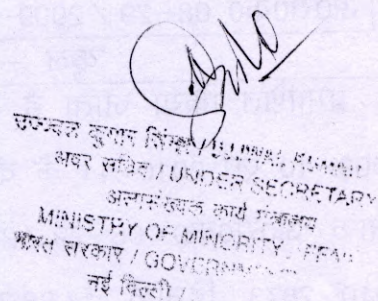 उज्ज्वल कुमार / UJJWAL KUMAR
अवर सचिव / UNDER SECRETARY
अल्पसंख्यक कार्य मंत्रालय
MINISTRY OF MINORITY
भारत सरकार / GOVERNMENT
नई दिल्ली